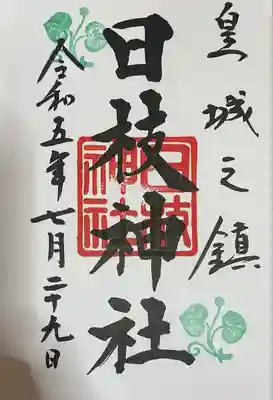 皇城之鎮
日枝神社
日枝神社
令和五年七月二十九日